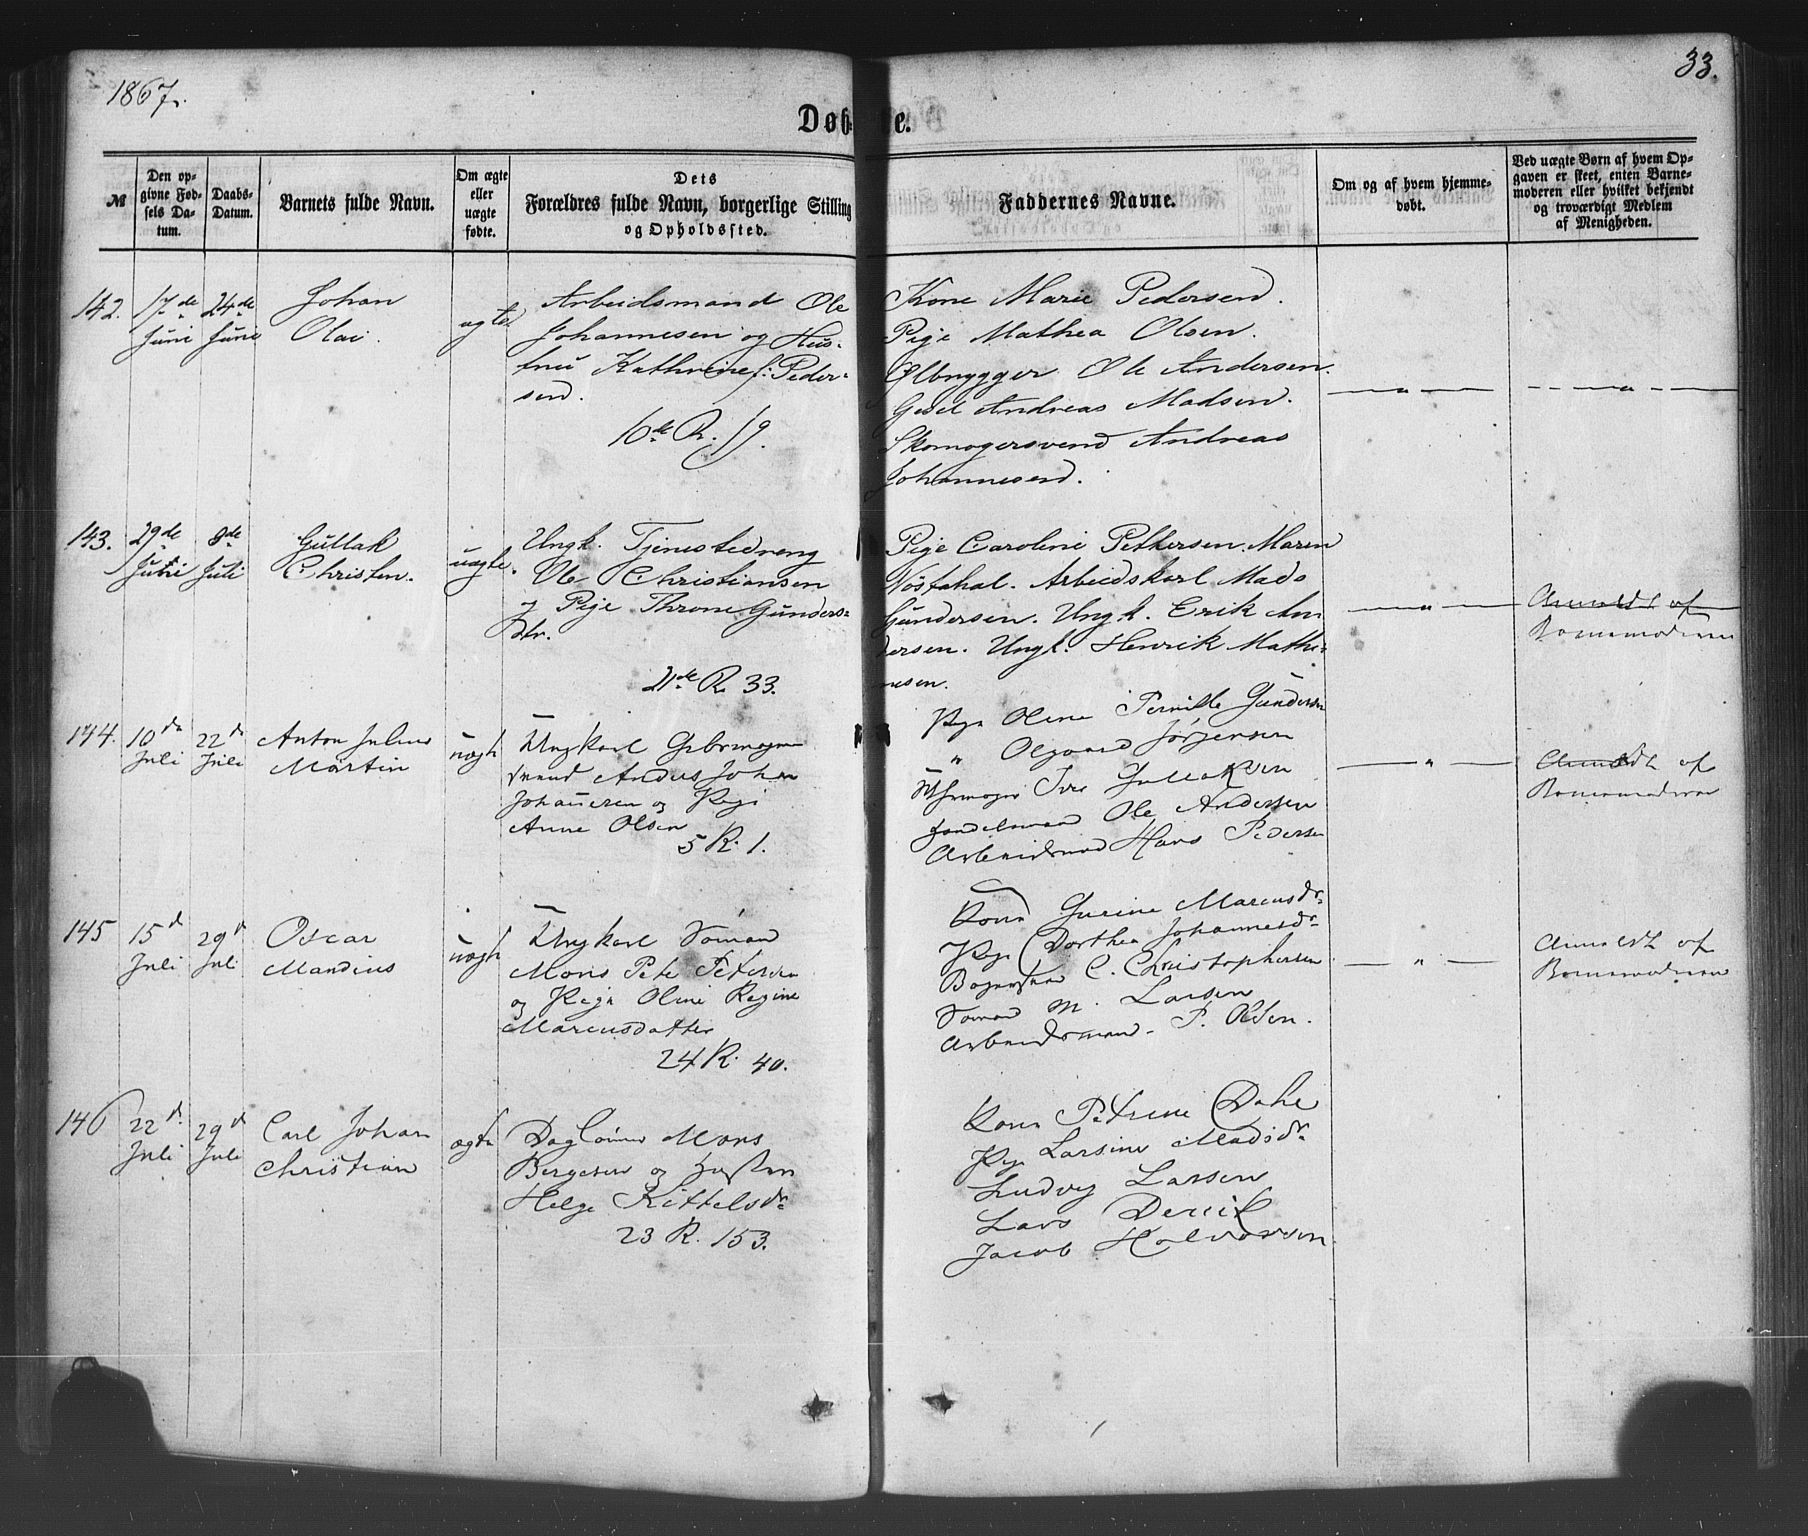 1867.
33.
Døb- e.
№
Den opgivne Fødsels Datum.
Daabs-Datum.
Barnets fulde Navn.
Om ægte eller uægte fødte.
Dets Forældres fulde Navn, borgerlige Stilling og Opholdssted.
Faddernes Navne.
Om og af hvem hjemmedøbt.
Ved uægte Børn af hvem Opgaven er skeet, enten Barnemoderen eller hvilket bekjendt og troværdigt Medlem af Menigheden.
142. 17de Juni 24de Juni
Johan
Olai.
ægte.
Arbeidsmand Ole
Johannesen og Hus-
tru Kathrine f: Peder-
sen.
16de R. 19.
Kone Marie Pedersen.
Pige Mathea Olsen.
Ølbrygger Ole Andersen.
Gesel Andreas Madsen.
Skomagersvend Andreas
Johannesen.
143. 29de Juni 8de Juli
Gullak
Christen.
uægte.
Ungk. Tjenestedreng
Ole Christiansen
og Pige Throne Gunders-
dtr.
21de R. 33.
Pige Caroline Pettersen. Maren
Nöstahal. Arbeidskarl Mads
Gundersen. Ungk. Erik An-
dersen. Ungk. Henrik Mathi-
nesen.
Anmeldt af
Barnemoderen
144. 10d Juli 22d Juli
Anton Julius
Martin
uægte
Ungkarl
svend Anders Johan
Johannesen og Pige
Anne Olsen
5 R. 1.
Pige Oline Pernille Gundersen
" Olgaard Jørgensen
Ivar Gullaksen
Handelsmand Ole Andersen
Arbeidsmand Hans Pedersen
Anmeldt af
Barnemoderen
145 15d Juli 29d Juli
Oscar
Mandius
uægte
Ungkarl Sømand
Mons Pete Petersen
og Pige Oline Regine
Marcusdatter
24 R. 40.
Kone Gurine Marcusdr.
Pige Dorthea Johannesdr
C. Christophersen
Sømand M. Larsen
Arbeidsmand P. Olsen.
Anmeldt af
Barnemoderen
146 22d. Juli 29d Juli
Carl Johan
Christian
ægte
Daglønner Mons
Bergesen og Hustru
Helge Kittelsdr
23 R. 153.
Kone Petrine Dahl
Pige Larsine Madsdr
Ludvig Larsen
Lars
Jacob Halvorsen